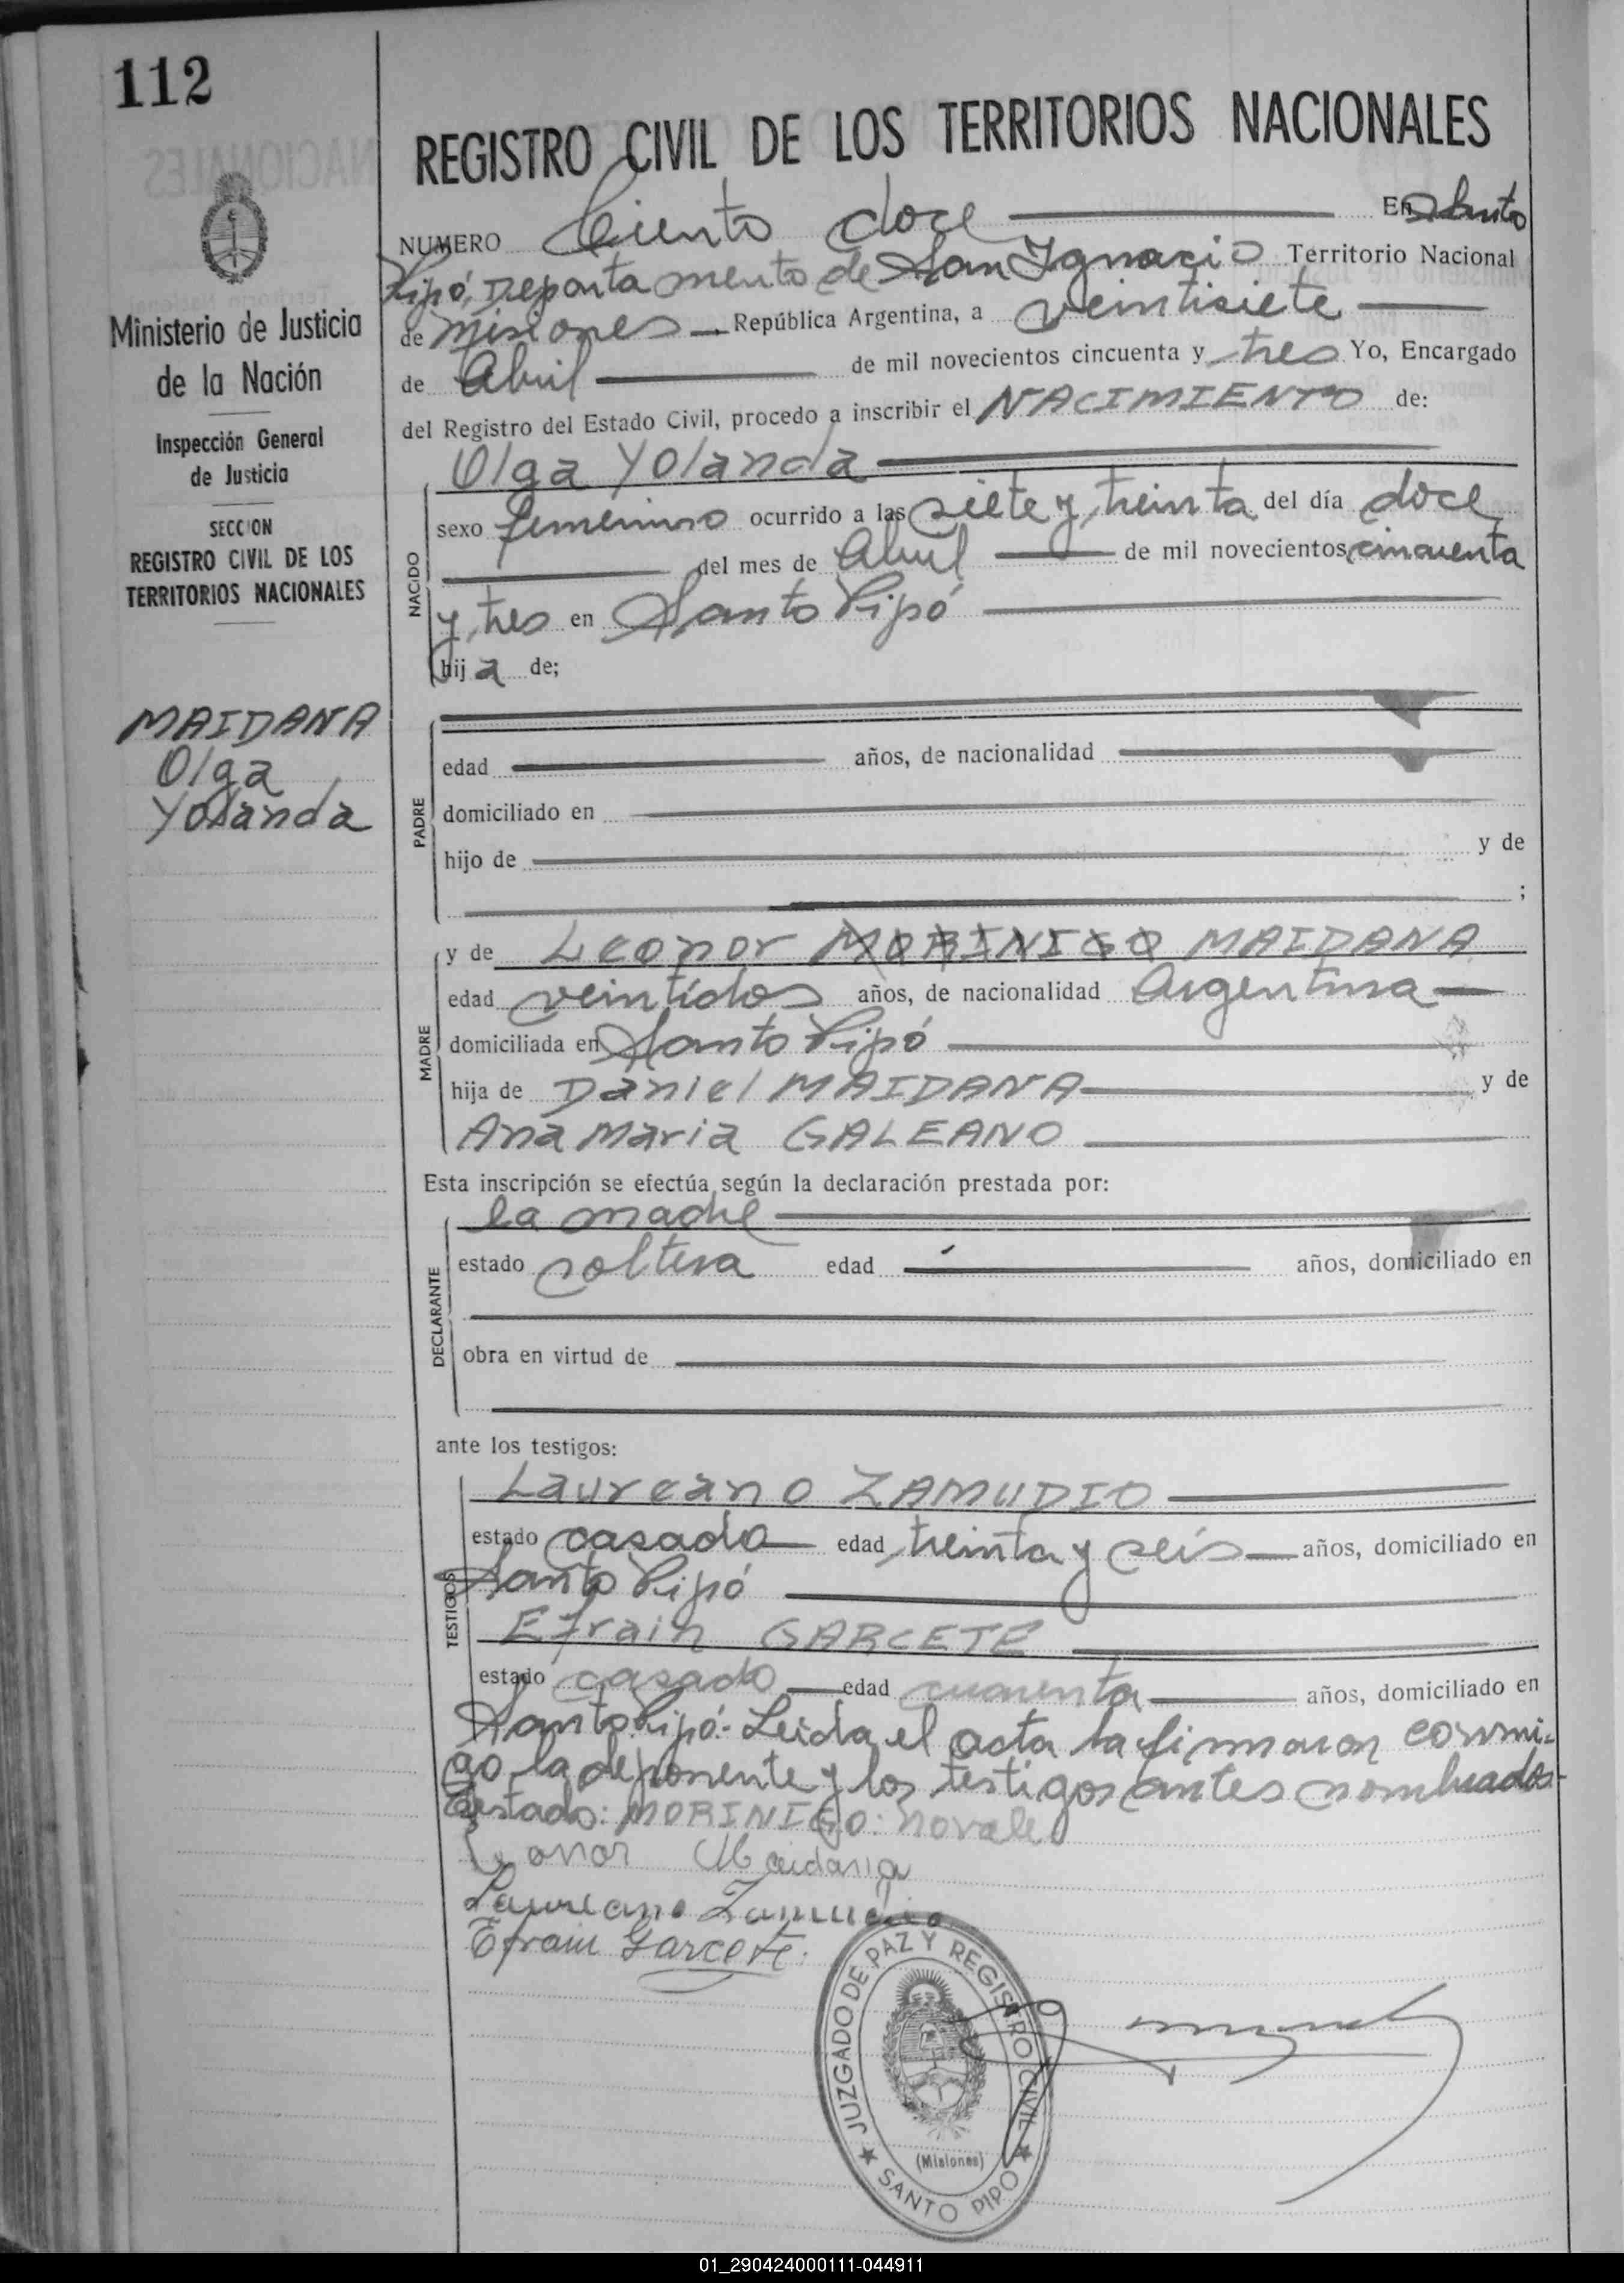 112
REGISTRO CIVIL DE LOS TERRITORIOS NACIONALES
Ministerio de Justicia
de la Nación
Inspección General
de Justicia
SECCION
REGISTRO CIVIL DE LOS
TERRITORIOS NACIONALES
MAIDANA
Olga
Yolanda
NUMERO Ciento doce En Santo
Pipó, Departamento de San Ignacio Territorio Nacional
de Misiones República Argentina, a veintisiete
de Abril de mil novecientos cincuenta y tres Yo, Encargado
del Registro del Estado Civil, procedo a inscribir el NACIMIENTO de:
Olga Yolanda
NACIDO
sexo femenino ocurrido a las siete y treinta del día doce
del mes de Abril de mil novecientos cincuenta
y tres en Santo Pipó
hija de;
PADRE
edad años, de nacionalidad
domiciliado en
hijo de y de
;
MADRE
y de Leonor MORINIGO MAIDANA
edad veintidos años, de nacionalidad Argentina
domiciliada en Santo Pipó
hija de Daniel MAIDANA y de
Ana Maria GALEANO
Esta inscripción se efectúa según la declaración prestada por:
DECLARANTE
la madre
estado soltera edad años, domiciliado en
obra en virtud de
ante los testigos:
TESTIGOS
Laureano ZAMUDIO
estado casado edad treinta y seis años, domiciliado en
Santo Pipó
Efrain GARCETE
estado casado edad cuarenta años, domiciliado en
Santo Pipó.- Leida el acta la firmaron conmi-
go la deponente y los testigos antes nombrados.-
Testado: MORINIGO: no vale
Leonor Maidana
Laureano Zamudio
Efrain Garcete.
JUZGADO DE PAZ Y REGISTRO CIVIL
(Misiones)
SANTO PIPO
01_290424000111-044911